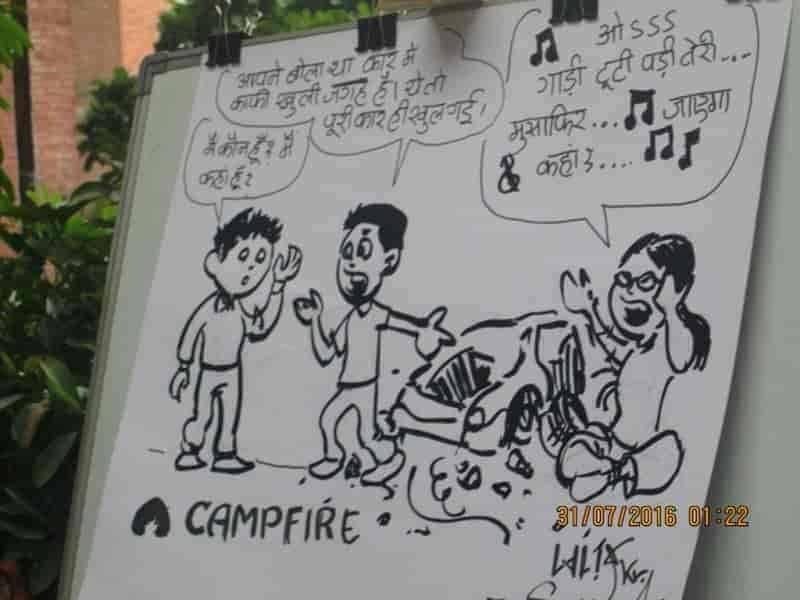 आपने बोला था कार मे
काफी खुली जगह है। ये तो
पूरी कार ही खुल गई।
मै कौन हूँ? मै
कहा हूँ?
ओ ऽऽऽ
गाड़ी टूटी पड़ी तेरी...
मुसाफिर... जाएगा
कहां?....
CAMPFIRE
31/07/2016 01:22